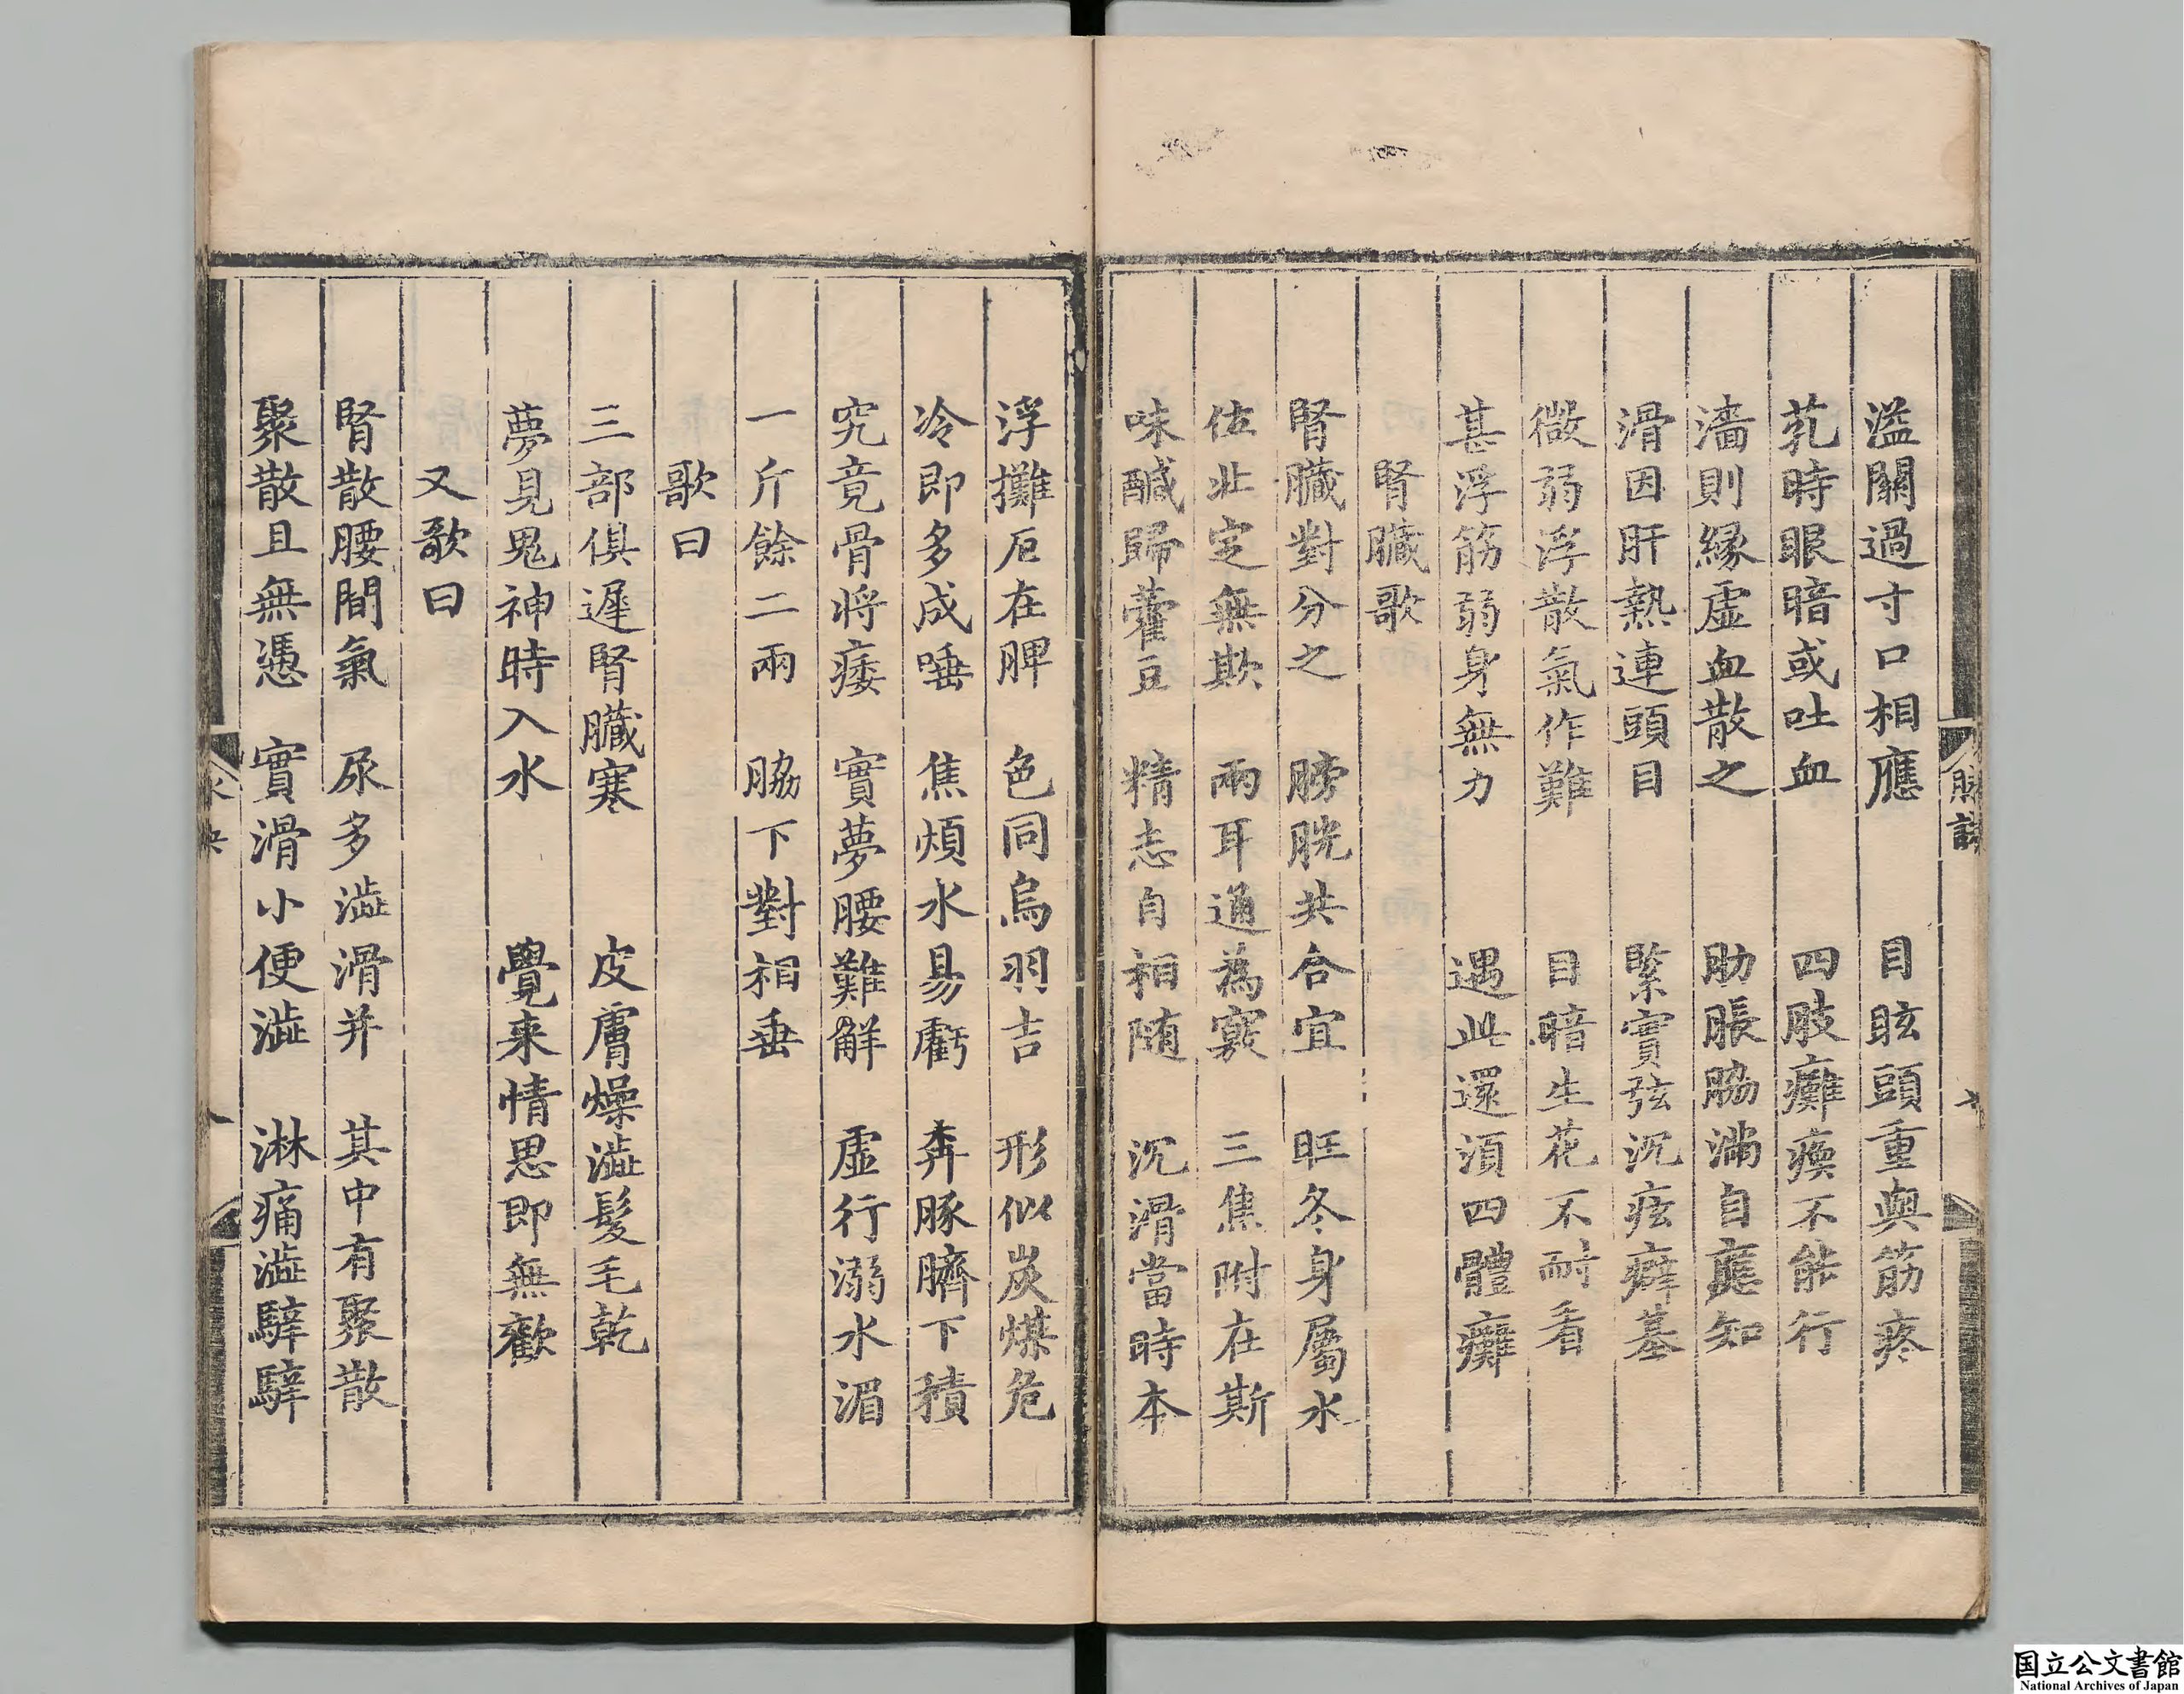 溢關過寸口相應　目眩頭重與筋疼
芤時眼暗或吐血　四肢癱瘓不能行
濇則緣虛血散之　肋脹脇滿自應知
滑因肝熱連頭目　緊實弦沉痃癖基
微弱浮散氣作難　目暗生花不耐看
甚浮筋弱身無力　遇此還須四體癱
腎臟歌
腎臟對分之　膀胱共合宜　旺冬身屬水
位北定無欺　兩耳通為竅　三焦附在斯
味鹹歸藿豆　精志自相随　沉滑當時本
浮攤厄在脾　色同烏羽吉　形似炭煤危
冷即多成唾　焦煩水易虧　奔豚臍下積
究竟骨将痿　實夢腰難觧　虛行溺水湄
一斤餘二兩　脇下對相垂
歌曰
三部俱遲腎臟寒　皮膚燥澁髮毛乾
夢見鬼神時入水　覺来情思即無歡
又歌曰
腎散腰間氣　尿多澁滑并　其中有聚散
聚散且無憑　實滑小便澁　淋痛澁騂騂
脉訣
国立公文書館
National Archives of Japan